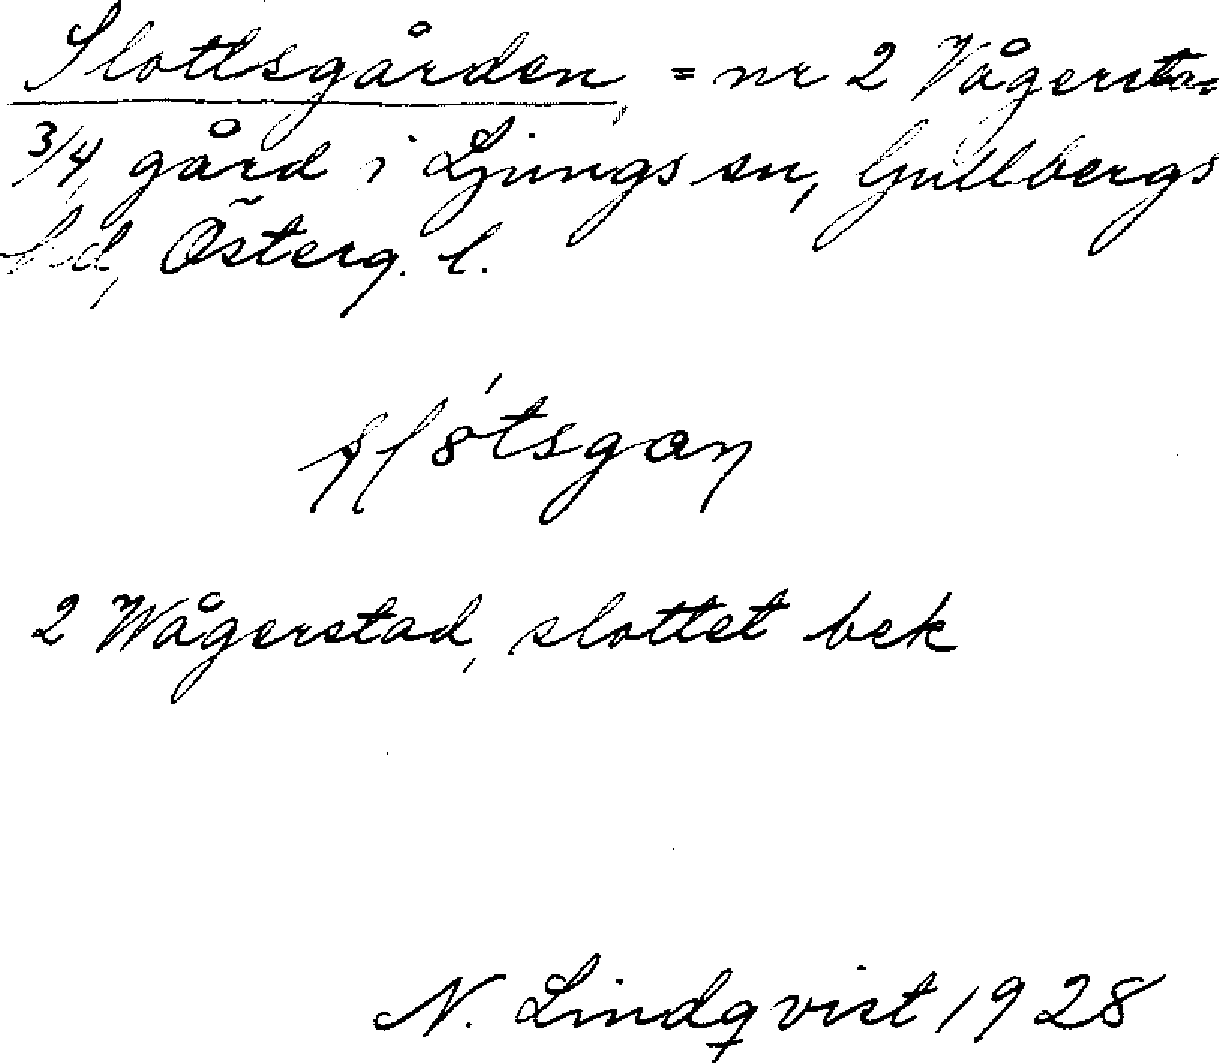 Slottsgården, = nr 2 Vågersta=
3/4, gård i Ljungs sn, Gullbergs
hd, Österg. l.
2 Wågerstad, slottet bek
N. Lindqvist 1928